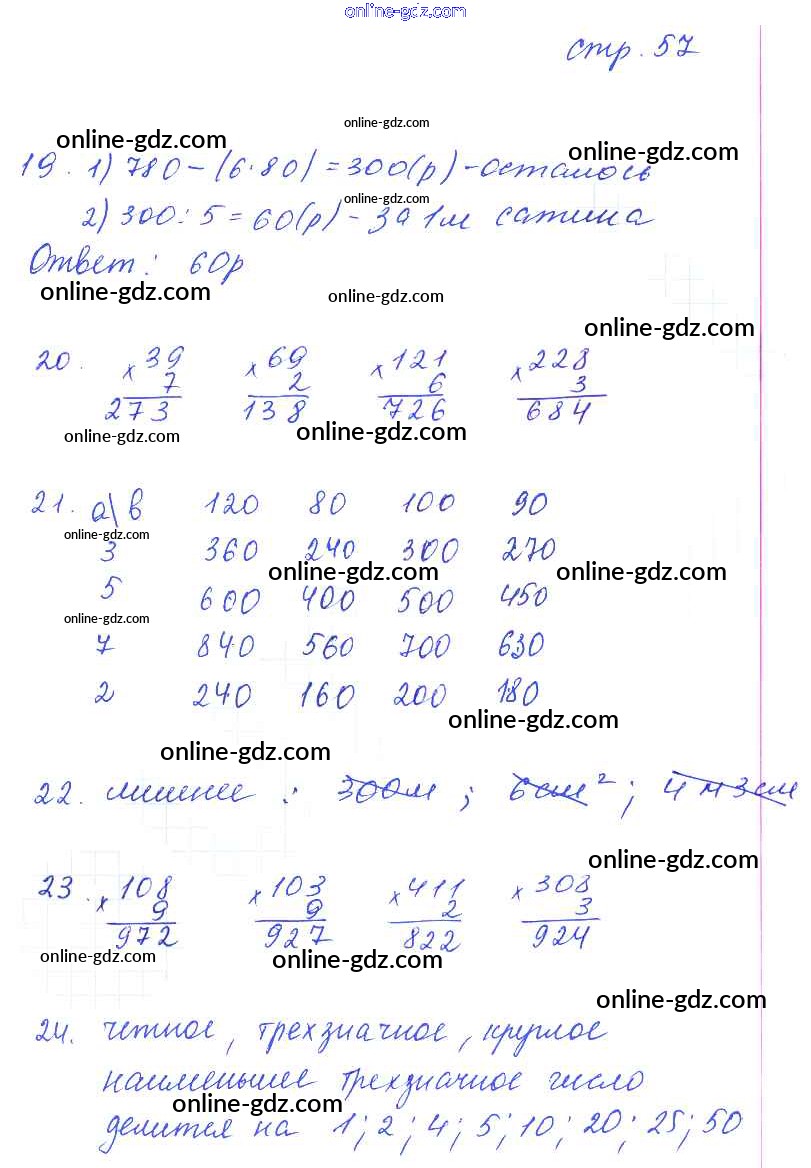 online-gdz.com
стр. 57
online-gdz.com
online-gdz.com
online-gdz.com
19. 1) 780-(6·80)=300(р)-осталось
online-gdz.com
2) 300:5=60(р)-за 1м сатина
Ответ: 60р
online-gdz.com
online-gdz.com
online-gdz.com
20. х39 х69 х121 х228
7 2 6 3
273 138 726 684
online-gdz.com
online-gdz.com
21. а\в 120 80 100 90
online-gdz.com
3 360 240 300 270
online-gdz.com
online-gdz.com
5 600 400 500 450
online-gdz.com
7 840 560 700 630
2 240 160 200 180
online-gdz.com
online-gdz.com
22. лишнее : 300м; 6см²; 4м3см
online-gdz.com
23. х108 х103 х411 х308
9 9 2 3
972 927 822 924
online-gdz.com
online-gdz.com
online-gdz.com
24. четное, трехзначное, круглое
наименьшее трехзначное число
online-gdz.com
делится на 1; 2; 4; 5; 10; 20; 25; 50